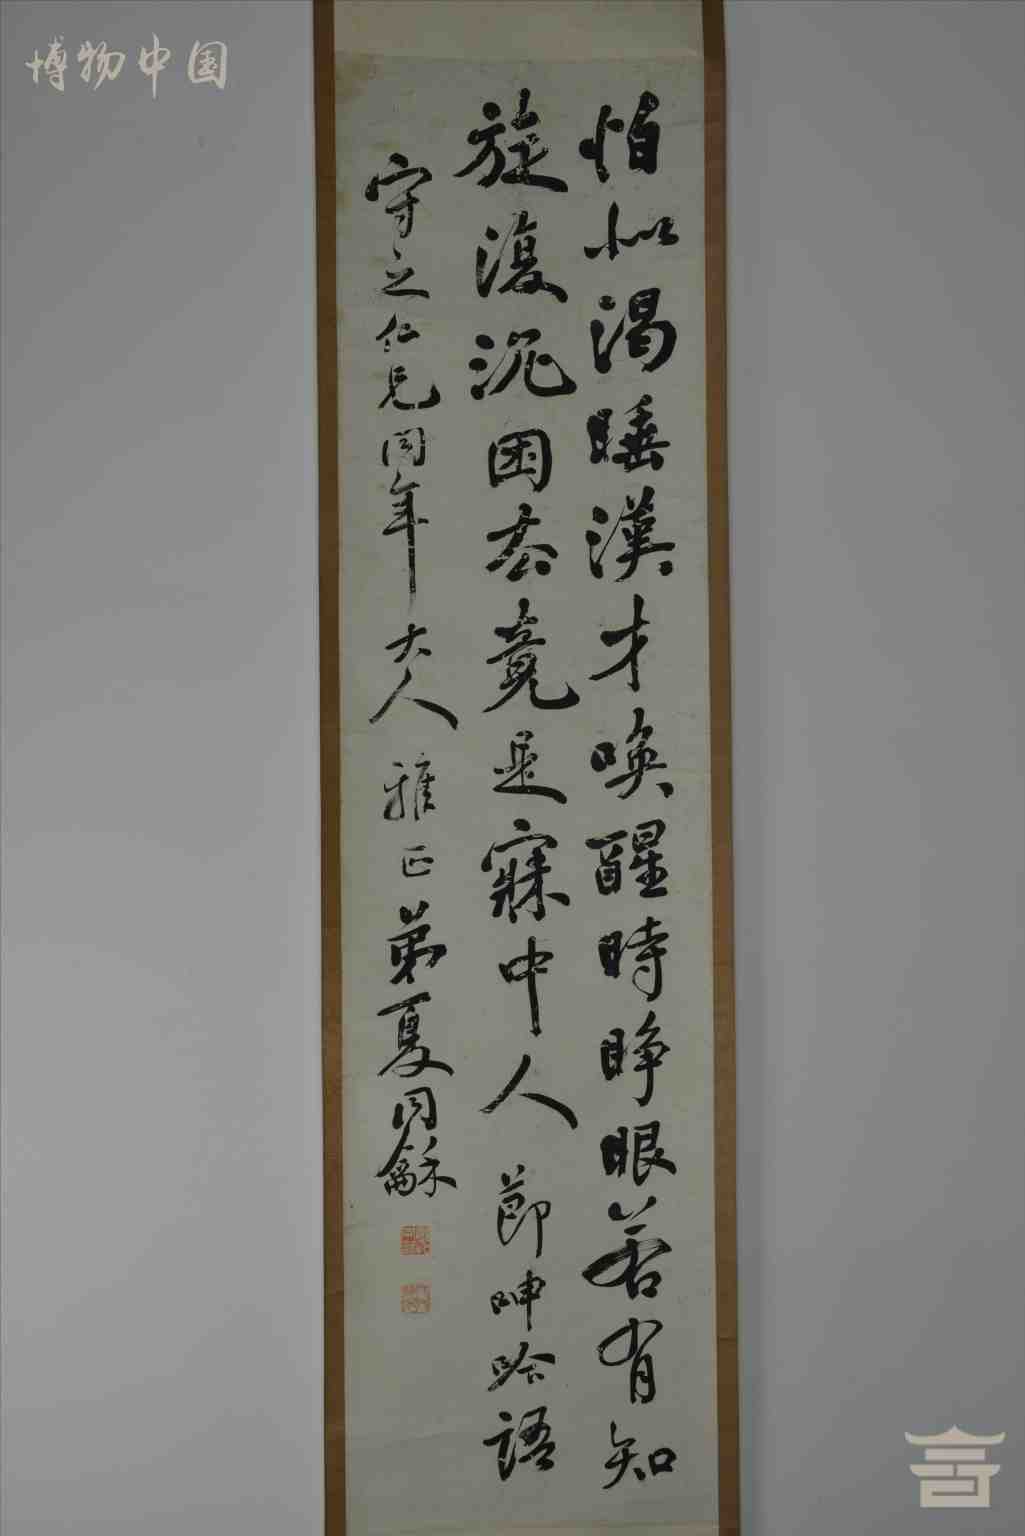 博物中国
恰似渴睡漢才喚醒時睁眼若有知
旋復沉困去竟是寐中人 節呻吟語
守之仁兄同年大人 雅正 弟夏同龢